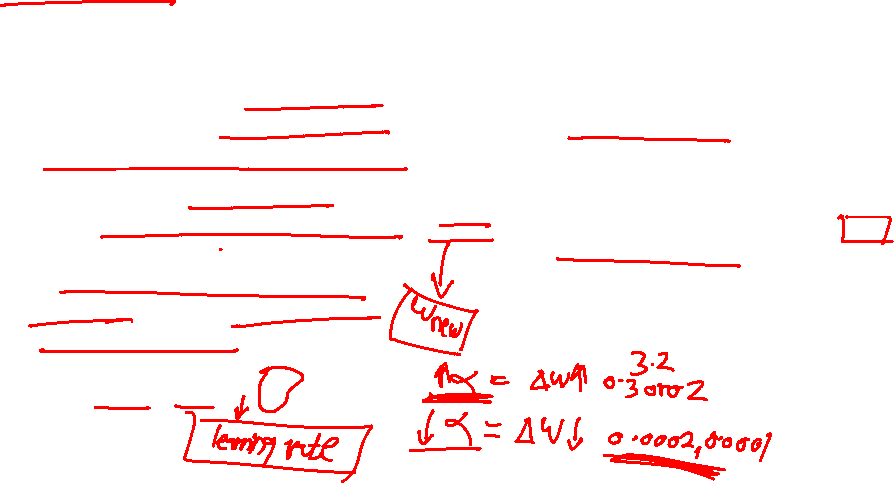 Wnew
↑α = ΔW↑ 3.2
↓α = ΔW↓ 0.0002, 0.0001
lerning rate